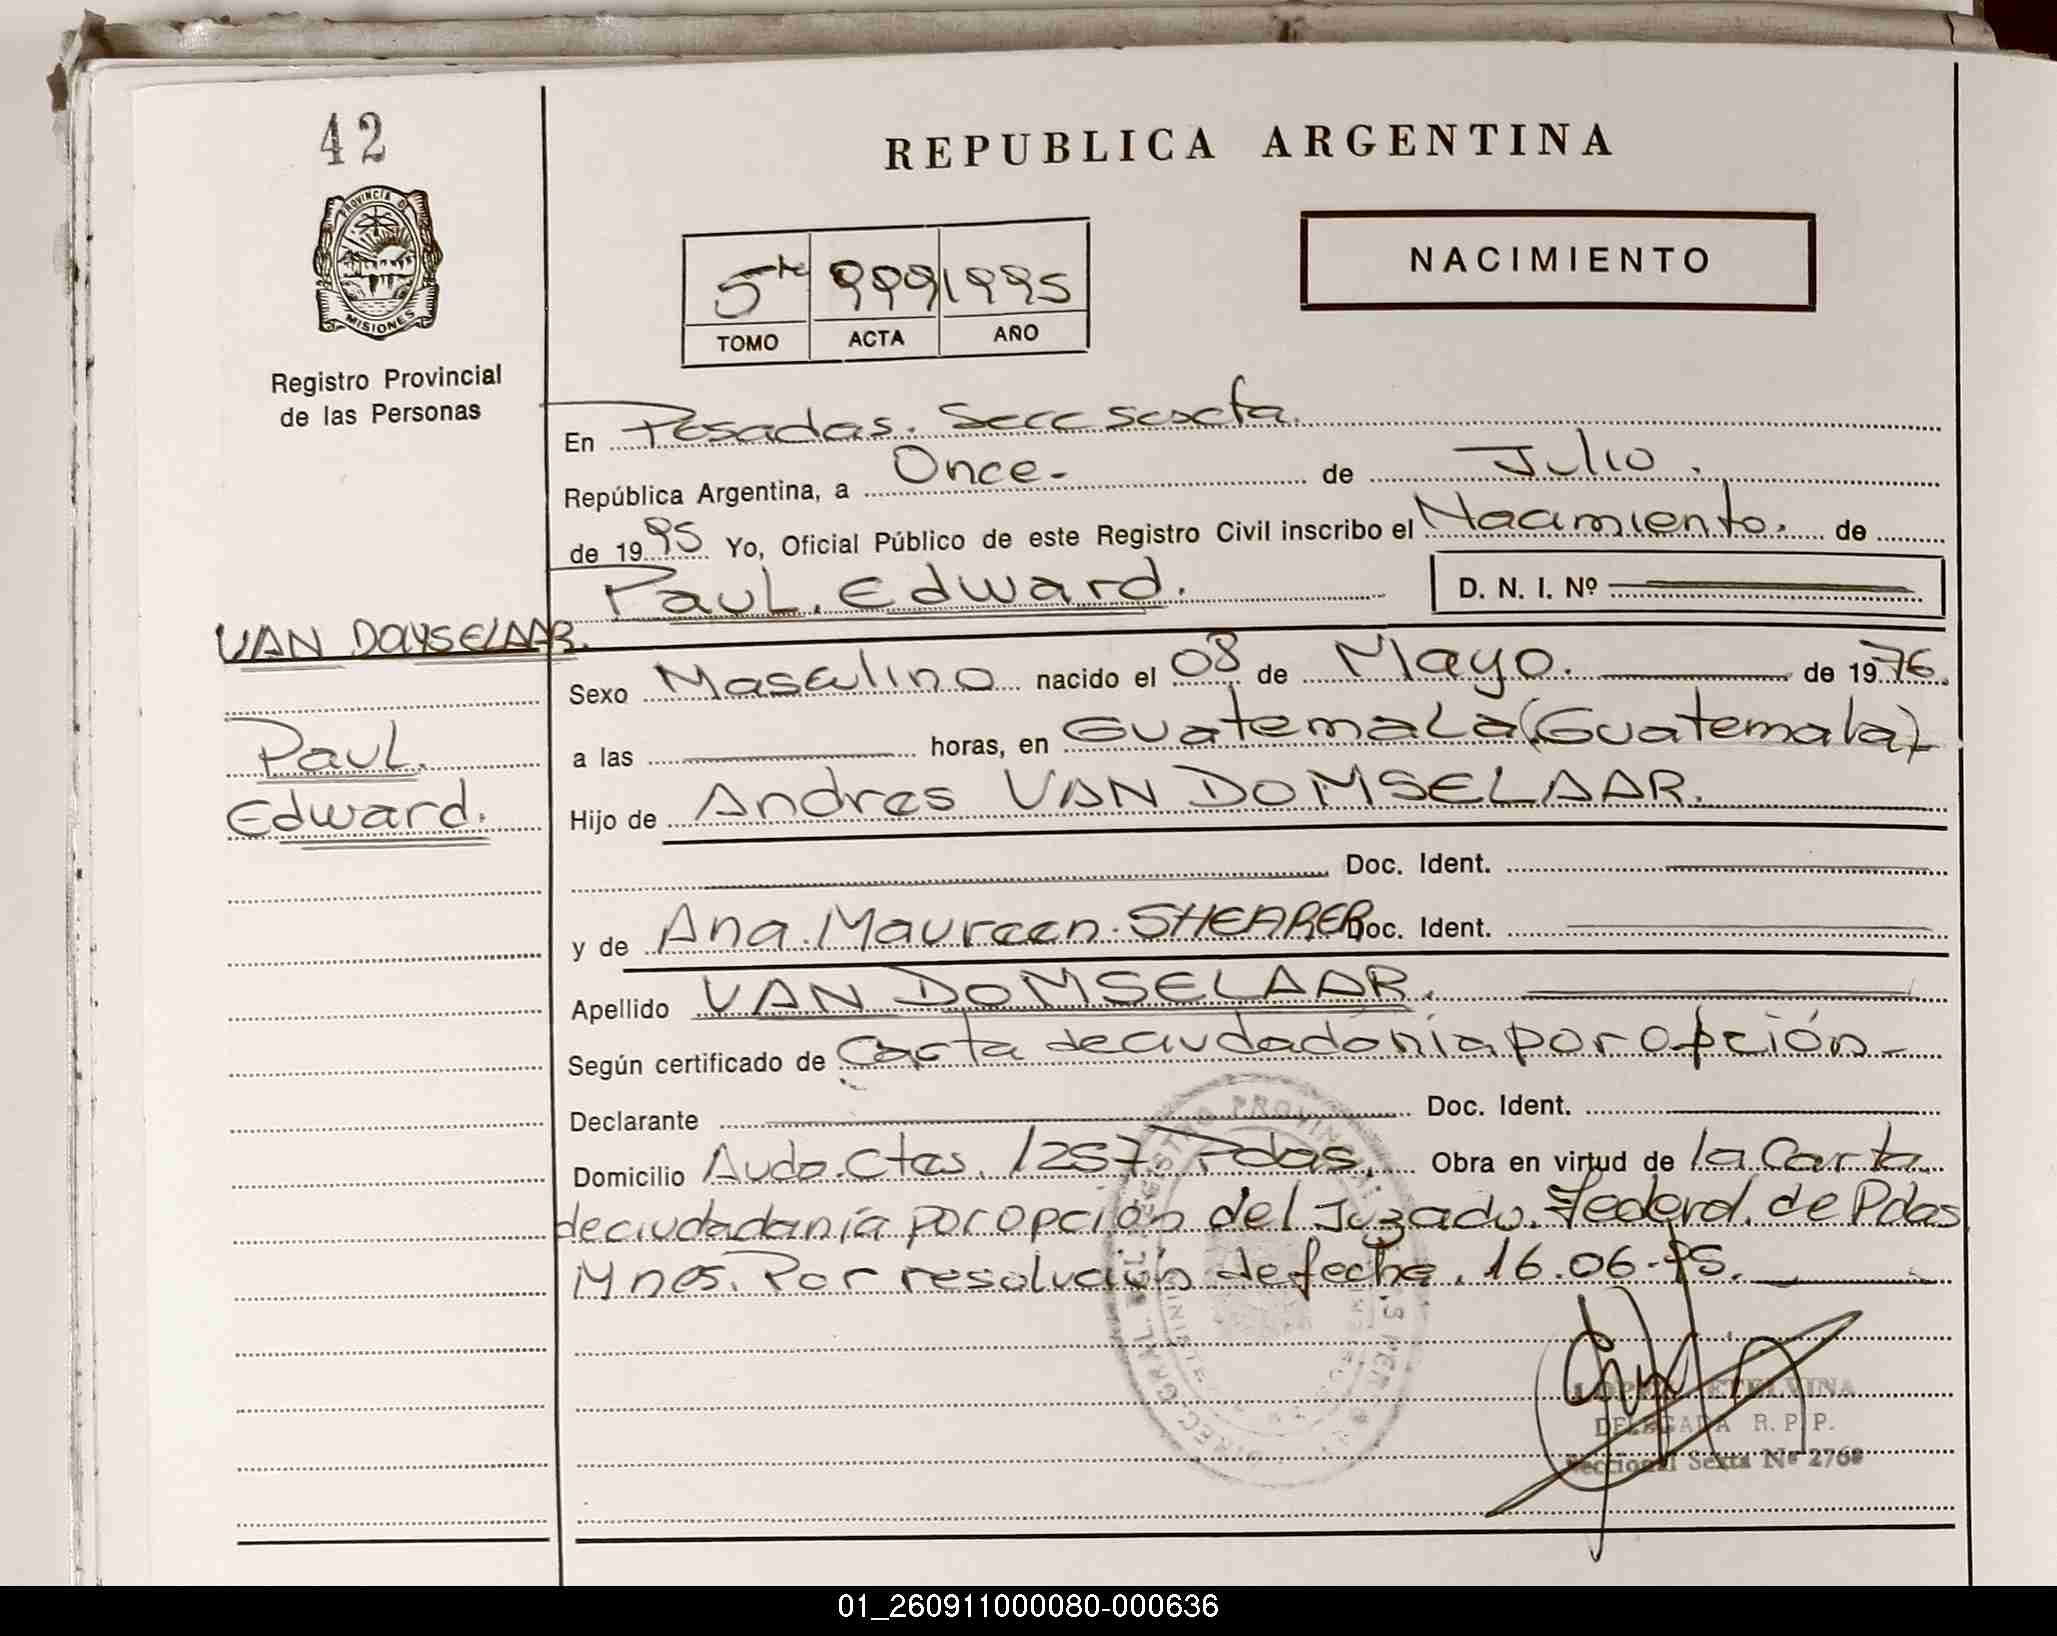 42
REPUBLICA ARGENTINA
PROVINCIA D
MISIONES
NACIMIENTO
5to 999 1995
TOMO ACTA AÑO
Registro Provincial
de las Personas
En Posadas. Secc sexta.
República Argentina, a Once- de Julio.
de 1995 Yo, Oficial Público de este Registro Civil inscribo el Nacimiento. de
Paul. Edward. D. N. I. Nº
VAN DOMSELAAR.
Paul.
Edward.
Sexo Masculino nacido el 08 de Mayo. de 1976.
a las horas, en Guatemala (Guatemala)-
Hijo de Andres VAN DOMSELAAR.
Doc. Ident.
y de Ana. Maureen. SHEARER Doc. Ident.
Apellido VAN DOMSELAAR.
Según certificado de Carta de ciudadanía por opción-
Declarante Doc. Ident.
Domicilio Avda. Ctes. 1257 Pdas. Obra en virtud de la Carta
de ciudadanía por opción del Juzado. Federal. de Pdas
Mnes. Por resolución de fecha. 16.06-95.
LOPEZ ETELVINA
DELEGADA R. P. P.
Seccional Sexta Nº 2768
01_260911000080-000636